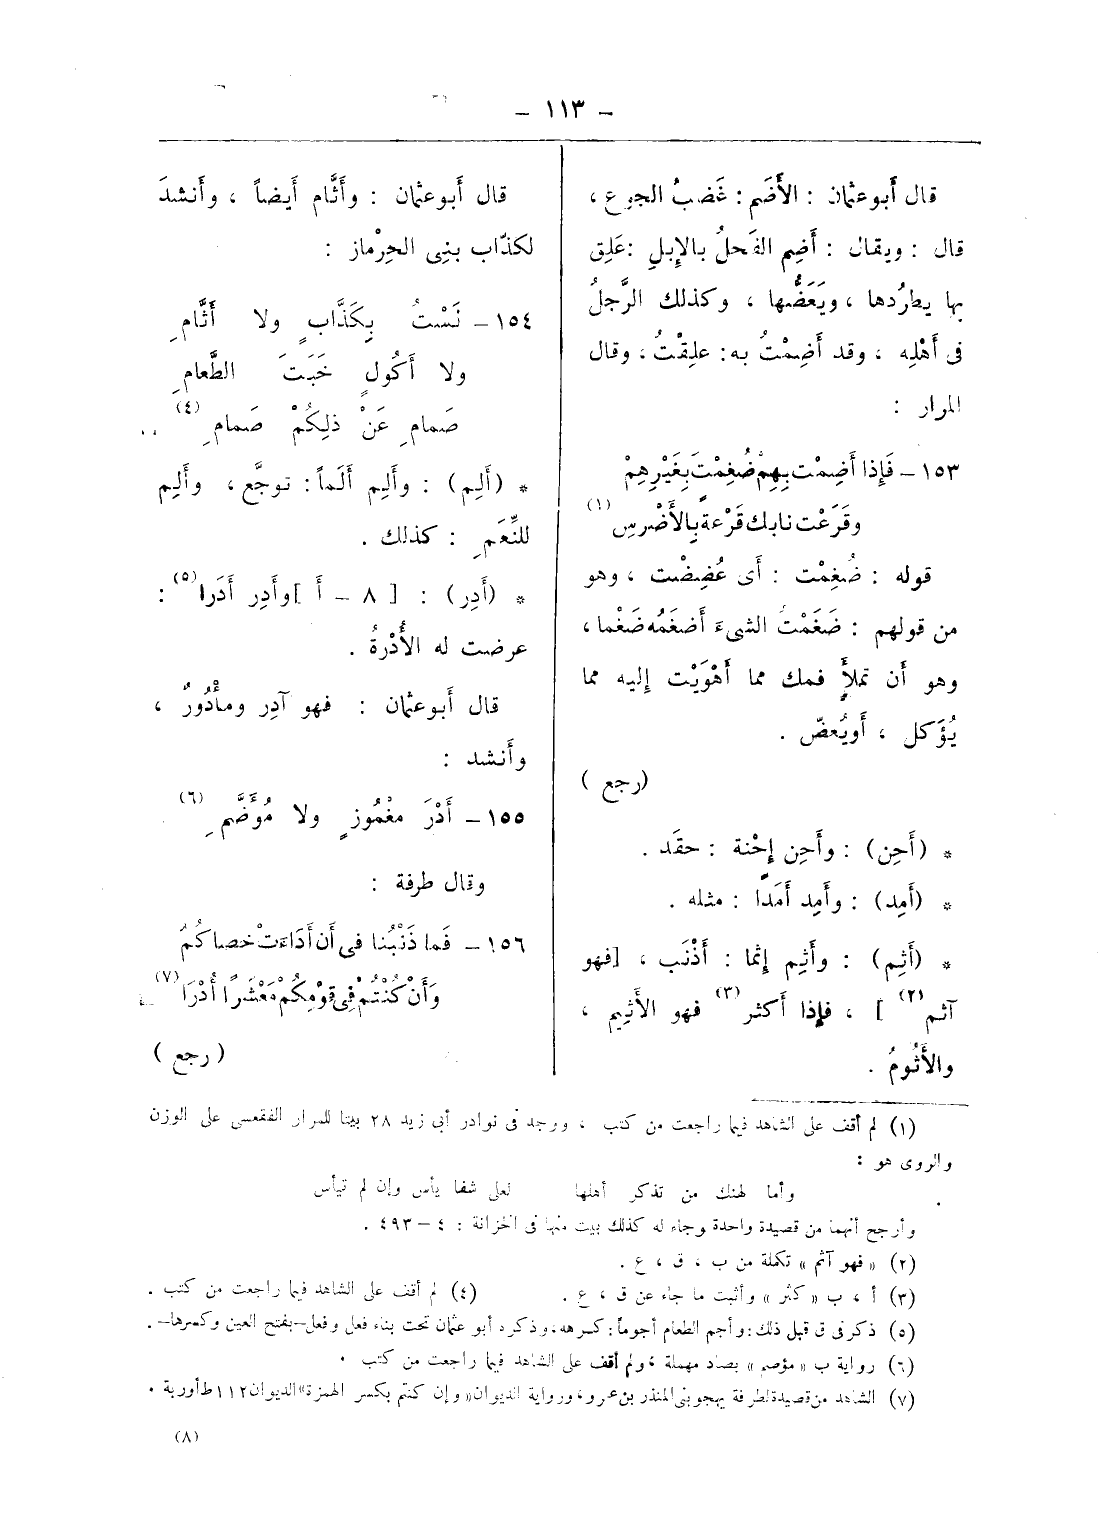 – ١١٣ –
قال أبو عثمان : الأَضَم : غَضبُ الجوع ،
قال : ويقال : أَضِم الفَحلُ بالإِبلِ : عَلِق
بها يطرُدها ، ويَعَضُّها ، وكذلك الرَّجلُ
فى أَهْلِه ، وقد أَضِمْتُ به : علِقْتُ ، وقال
المرار :
١٥٣ – فَإِذا أَضِمْت بِهِمْ ضُغِمْتَ بِغَيْرِهِمْ
وقَرَعْت نابك قَرْعةً بِالأَضْرسِ (١)
قوله : ضُغِمْت : أَى عُضِضْت ، وهو
من قولهم : ضَغَمْتُ الشىءَ أَضغَمُه ضَغْما ،
وهو أَن تملأَ فمك مما أَهْوَيْت إِليه مما
يُؤَكل ، أَويُعضّ .
(رجع )
* (أَحِن) : وأَحِن إِحْنة : حقَد .
* (أَمِد) : وأَمِد أَمَدًا : مثله .
* (أَثِم) : وأَثِم إِثْما : أَذْنَب ، [فهو
آثم (٢) ] ، فإِذا أَكثر (٣) فهو الأَثِيم ،
والأَثُومُ .
قال أَبوعثمان : وأَثَّام أَيضاً ، وأَنشدَ
لكذّاب بنِى الحِرْماز :
١٥٤ – لَسْتُ بِكَذَّابٍ ولا أَثَّامِ
ولا أَكُولٍ خَبَثَ الطَّعامِ
صَمامِ عَنْ ذلِكُمْ صَمامِ (٤)
* (أَلِم) : وأَلِم أَلَماً : توجَّع ، وأَلِم
للنِّعَمِ : كذلك .
* (أَدِر) : [ ٨ – أ ] وأَدِر أَدَرا (٥) :
عرضت له الأُدْرةُ .
قال أَبوعثمان : فهو آدِر ومأْدُورٌ ،
وأَنشد :
١٥٥ – أَدْرَ مغْمُوزٍ ولا مُوَضَّمِ (٦)
وقال طرفة :
١٥٦ – فَما ذَنْبُنا فى أَن أَدَاءَتْ خصاكُمُ
وَأَنْ كُنْتُمْ فِى قوْمِكُمْ مَعْشَرًا أُدْرَا (٧)
( رجع )
(١) لم أقف على الشاهد فيما راجعت من كتب ، ووجد فى نوادر أبى زيد ٢٨ بيتا للمرار الفقعسى على الوزن
والروى هو :
وأما لهنك من تذكر أهلها لعلى شفا يأس وإن لم تيأس
وأرجح أنهما من قصيدة واحدة وجاء له كذلك بيت منها فى الخزانة : ٤ – ٤٩٣ .
(٢) « فهو آثم » تكملة من ب ، ق ، ع .
(٣) أ ، ب « كثر » وأثبت ما جاء عن ق ، ع . (٤) لم أقف على الشاهد فيما راجعت من كتب .
(٥) ذكر فى ق قبل ذلك : وأجم الطعام أجوماً : كرهه ، وذكره أبو عثمان تحت بناء فعل وفعل – بفتح العين وكسرها – .
(٦) رواية ب « مؤصم » بصاد مهملة ، ولم أقف على الشاهد فيما راجعت من كتب .
(٧) الشاهد من قصيدة لطرفة يهجو بنى المنذر بن عمرو ، ورواية الديوان « وإن كنتم بكسر الهمزة » الديوان ١١٢ ط أوربة .
(٨)